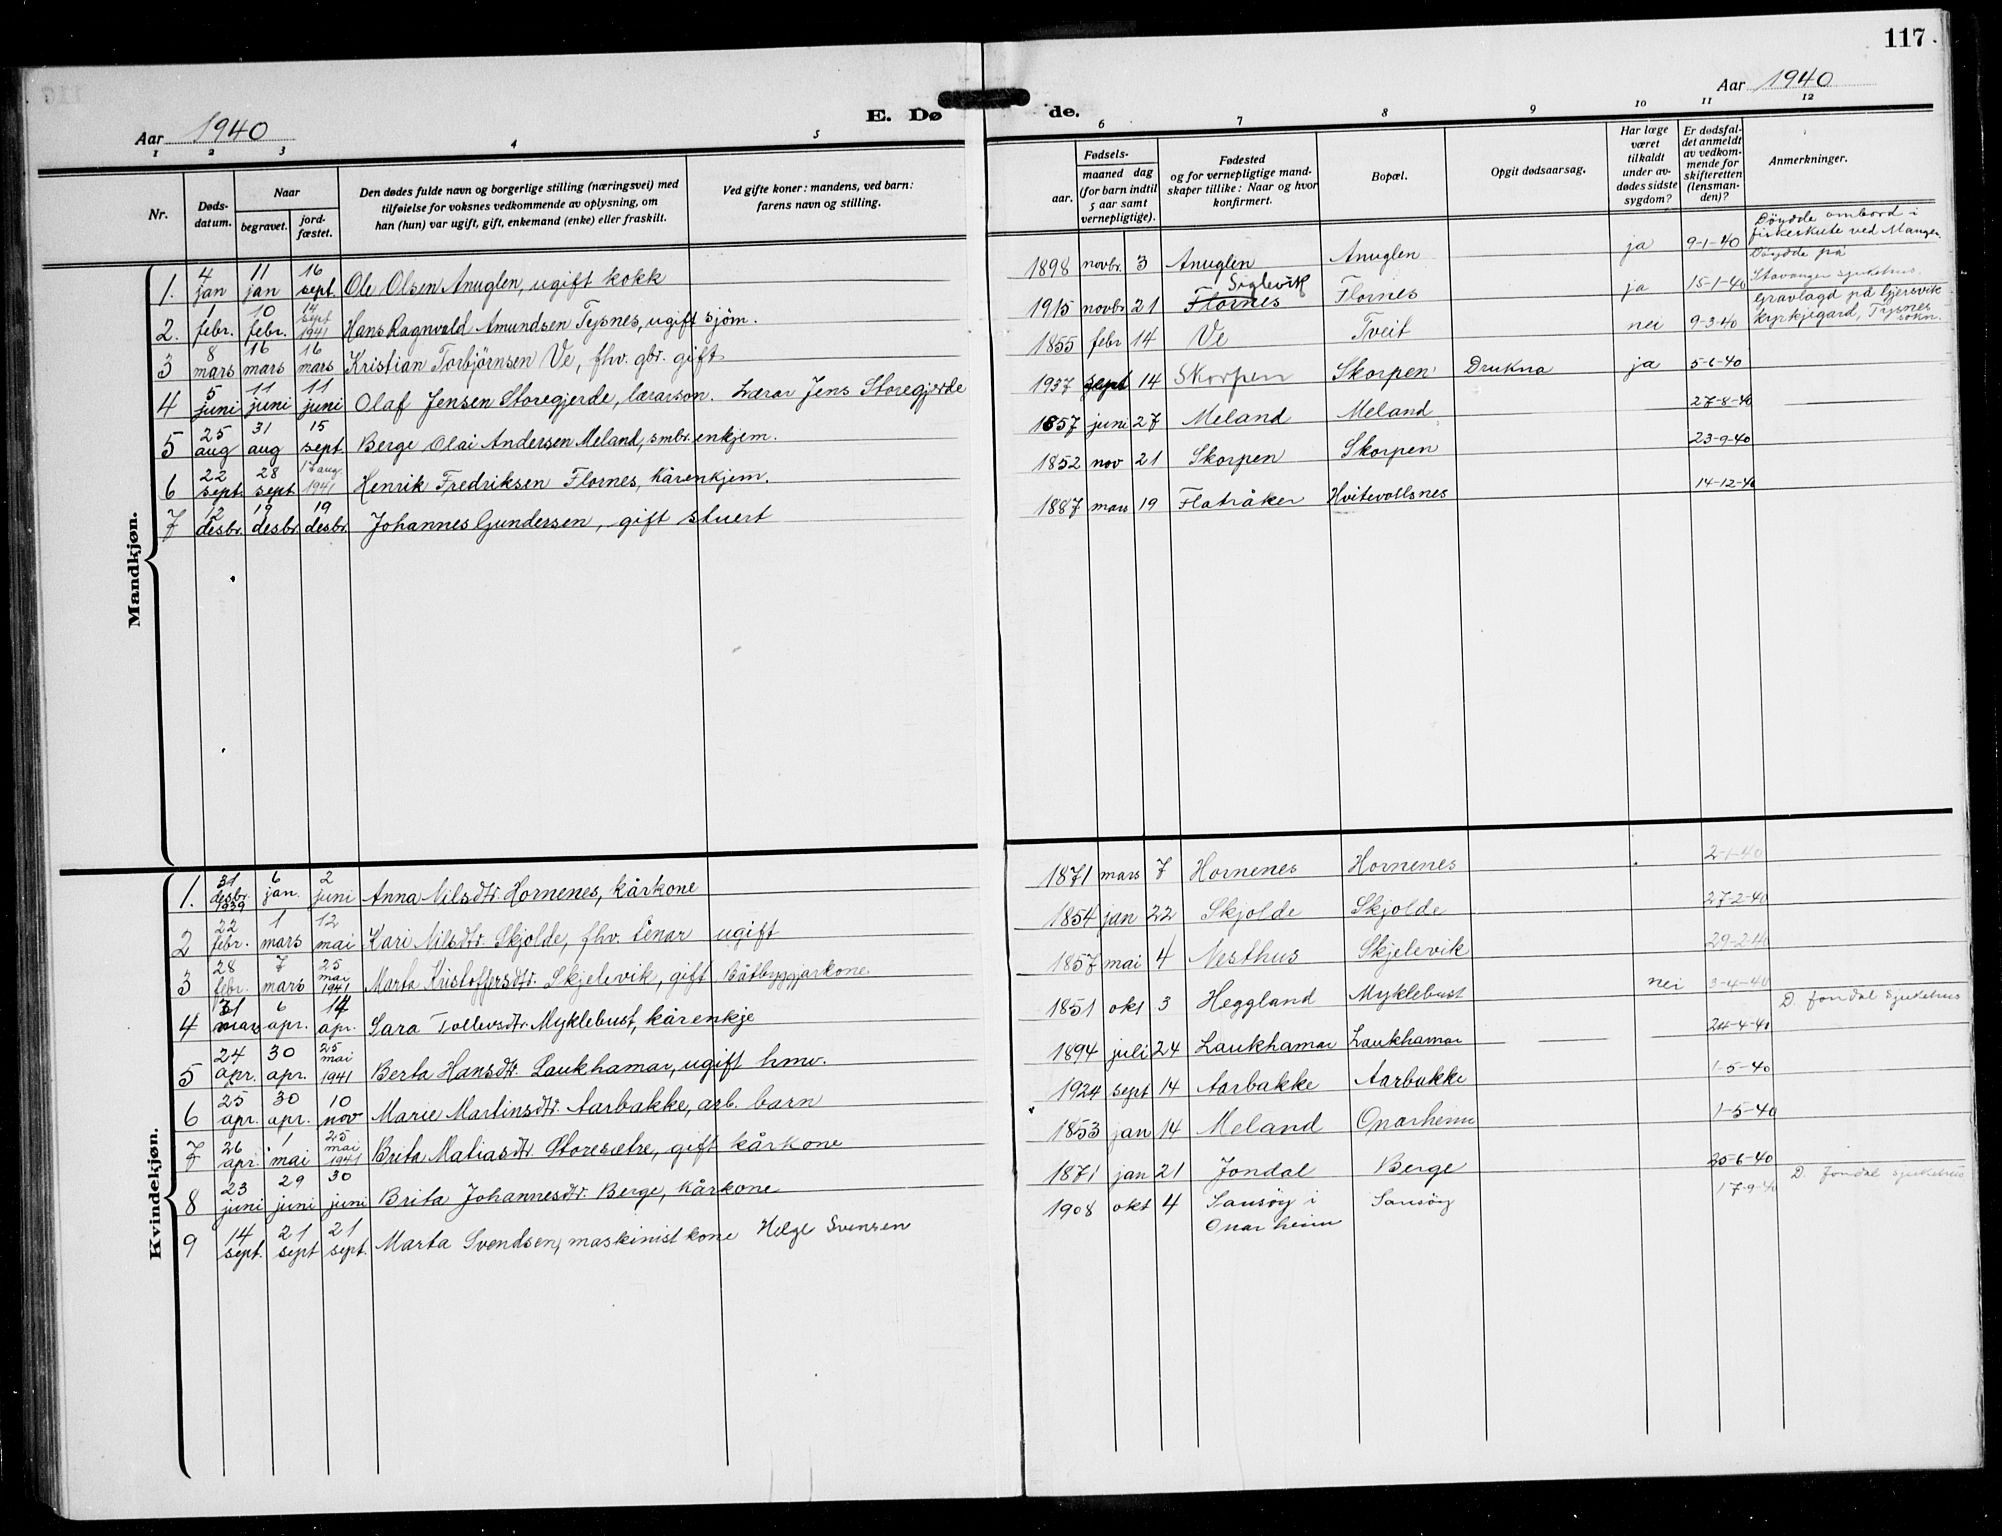 117
Aar 1940
E. Dø de.
Aar 1940
1 2 3 4 5 6 7 8 9 10 11 12
Nr.
Døds-
datum.
Naar
begravet.
jord-
fæstet.
Den dødes fulde navn og borgerlige stilling (næringsvei) med
tilføielse for voksnes vedkommende av oplysning, om
han (hun) var ugift, gift, enkemand (enke) eller fraskilt.
Ved gifte koner: mandens, ved barn:
farens navn og stilling.
Fødsels-
aar.
maaned dag
(for barn indtil
5 aar samt
vernepligtige).
Fødested
og for vernepligtige mand-
skaper tillike: Naar og hvor
konfirmert.
Bopæl.
Opgit dødsaarsag.
Har læge
været
tilkaldt
under av-
dødes sidste
sygdom?
Er dødsfal-
det anmeldt
av vedkom-
mende for
skifteretten
(lensman-
den)?
Anmerkninger.
Mandkjøn.
1. 4 jan 11 jan 16 sept. Ole Olsen Anuglen, ugift kokk 1898 novbr. 3 Anuglen Anuglen ja 9-1-40 Döydde ombord i fiskeskute ved Manger.
2. 1 febr. 10 febr. 14 sept 1941 Hans Ragnvald Amundsen Tysnes, ugift sjöm. 1915 novbr 21 Flornes Siglevik Flornes ja 15-1-40 Döydde på Stavanger sjukehus. Gravlagd på Gjersvik kyrkjegard, Tysnes sokn.
3 8 mars 16 mars 16 mars Kristian Torbjörnsen Ve, fhv. gbr. gift 1855 febr 14 Ve Tveit nei 9-3-40
4 5 juni 11 juni 11 juni Olaf Jensen Storegjerde, lærarson. Lærar Jens Storegjerde 1937 sept 14 Skorpen Skorpen Drukna ja 5-6-40
5 25 aug 31 aug 15 sept. Berge Olai Andersen Meland, smbr. enkjem. 1857 juni 27 Meland Meland 27-8-40
6 22 sept. 28 sept. 17 aug 1941 Henrik Fredriksen Flornes, kårenkjem. 1852 nov 21 Skorpen Skorpen 23-9-40
7 12 desbr. 19 desbr. 19 desbr. Johannes Gundersen, gift stuert 1887 mars 19 Flatråker Hvitevollsnes 14-12-40
Kvindekjøn.
1. 31 desbr. 1939 6 jan. 2 juni Anna Nilsdtr. Hornenes, kårkone 1871 mars 7 Hornenes Hornenes 2-1-40
2 22 febr. 1 mars 12 mai Kari Nilsdtr. Skjolde, fhv. tenar ugift 1854 jan 22 Skjolde Skjolde 27-2-40
3 28 febr. 7 mars 25 mai 1941 Marta Kristoffersdtr. Skjelevik, gift båtbyggjarkone 1857 mai 4 Nesthus Skjelevik 29-2-40
4 31 mars 6 apr. 14 apr. Sara Tollevsdtr Myklebust, kårenkje 1851 okt 3 Heggland Myklebust nei 3-4-40 D. Jondal sjukehus
5 24 apr. 30 apr. 25 mai 1941 Berta Hansdtr. Laukhamar, ugift hmv. 1894 juli 24 Laukhamar Laukhamar 24-4-40
6 25 apr. 30 apr. 10 nov Marie Martinsdtr. Aarbakke, arb. barn 1924 sept 14 Aarbakke Aarbakke 1-5-40
7 26 apr. 1 mai 25 mai 1941 Brita Matiasdtr. Storesætre, gift kårkone 1853 jan 14 Meland Onarheim 1-5-40
8 23 juni 29 juni 30 juni Brita Johannesdtr. Berge, kårkone 1871 jan 21 Jondal Berge 25-6-40
9 14 sept. 21 sept 21 sept. Marta Svendsen, maskinist kone Helge Svensen 1908 okt 4 Sansöy i Onarheim Sansöy 17-9-40 D. Jondal sjukehus